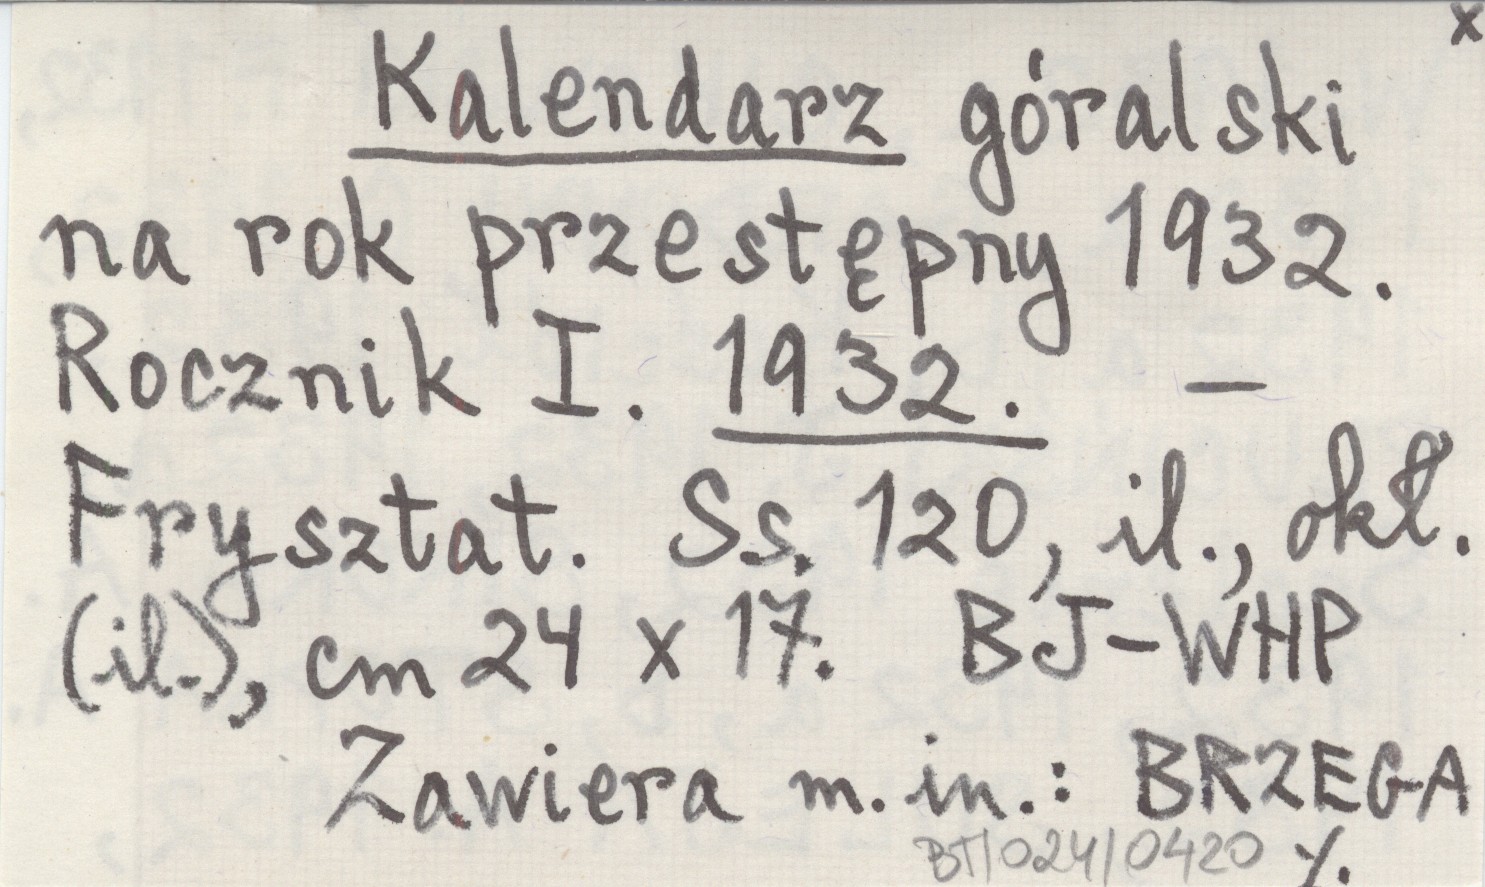 x
Kalendarz góralski
na rok przestępny 1932.
Rocznik I. 1932. —
Frysztat. Ss. 120, il., okł.
(il.), cm 24 x 17. BJ-WHP
Zawiera m. in.: BRZEGA
BT/024/0420 ./.